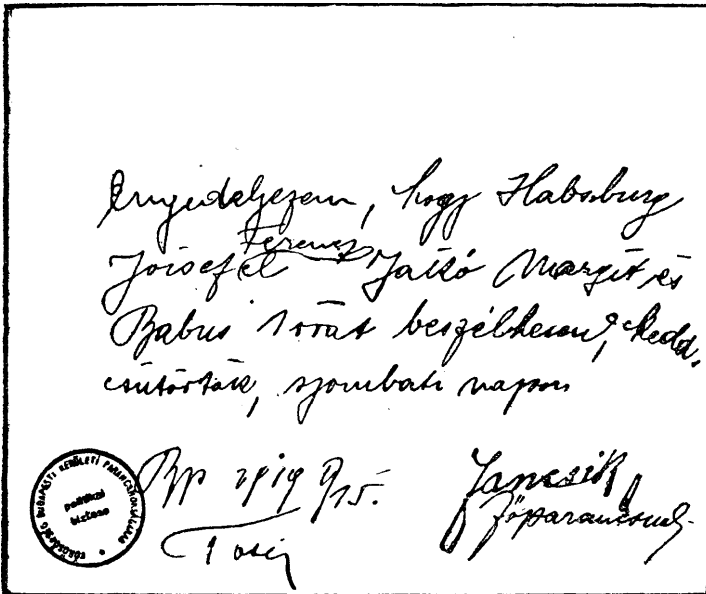 Engedélyezem, hogy Habsburg
Ferencz
József el Jatkó Margit és
Babus 1 órát beszélhessen, kedd,
csütörtök, szombati napon
Bp 1919
Jancsik
főparancsnok
VÖRÖSŐRSÉG BUDAPESTI KERÜLETI PARANCSNOKSÁGÁNAK
politikai
biztosa